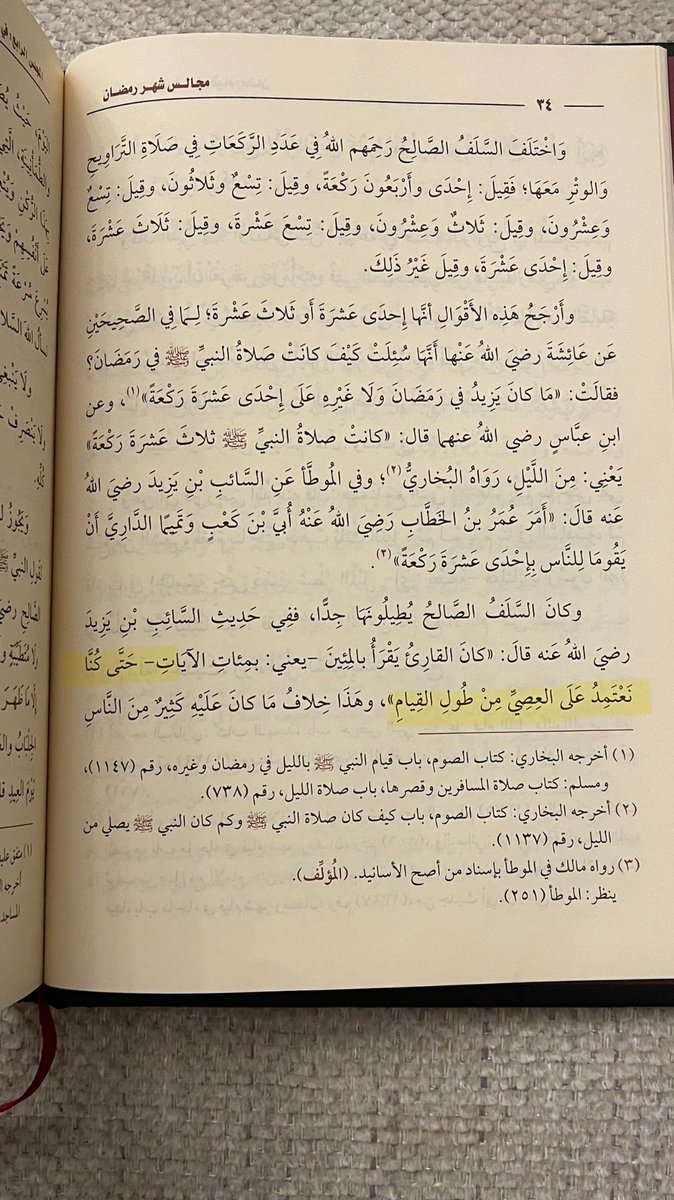 مجالس شهر رمضان
٣٤
وَاخْتَلَفَ السَّلَفُ الصَّالِحُ رَحِمَهم اللهُ فِي عَدَدِ الرَّكَعَاتِ فِي صَلَاةِ التَّرَاوِيحِ
وَالوِتْرِ مَعَهَا؛ فَقِيلَ: إِحْدَى وَأَرْبَعُونَ رَكْعَةً، وَقِيلَ: تِسْعٌ وَثَلَاثُونَ، وَقِيلَ: تِسْعٌ
وَعِشْرُونَ، وَقِيلَ: ثَلَاثٌ وَعِشْرُونَ، وَقِيلَ: تِسْعَ عَشْرةَ، وَقِيلَ: ثَلَاثَ عَشْرَةَ،
وَقِيلَ: إِحْدَى عَشْرَةَ، وَقِيلَ غَيْرُ ذَلِكَ.
وأَرْجَحُ هَذِهِ الأَقْوَالِ أنَّها إِحدَى عَشْرَةَ أَو ثلَاثَ عَشْرَةَ؛ لِـمَا فِي الصَّحِيحَيْنِ
عَن عَائِشَةَ رضيَ اللهُ عَنْها أَنَّهَا سُئِلَتْ كَيْفَ كانَتْ صَلاةُ النبيِّ ﷺ في رَمَضَانَ؟
فقالَتْ: «مَا كانَ يَزِيدُ في رَمَضَانَ وَلَا غَيْرِهِ عَلَى إِحْدَى عَشْرَةَ رَكْعَةً»(١)، وعن
ابنِ عبَّاسٍ رضي اللهُ عنهما قال: «كانتْ صلاةُ النبيِّ ﷺ ثلاثَ عَشْرَةَ رَكْعَةً»
يَعْنِي: مِنَ اللَّيْلِ، رَوَاهُ البُخاريُّ(٢)؛ وفي المُوطَّأ عَنِ السَّائبِ بْنِ يَزِيدَ رضيَ اللهُ
عنه قالَ: «أَمَرَ عُمَرُ بنُ الخَطَّابِ رَضِيَ اللهُ عَنْهُ أُبيَّ بْنَ كَعْبٍ وَتَمِيمًا الدَّاريَّ أَنْ
يَقُومَا لِلنَّاسِ بِإِحْدَى عَشَرَةَ رَكْعَةً»(٣).
وكانَ السَّلَفُ الصَّالحُ يُطِيلُونَهَا جِدًّا، ففِي حَدِيثِ السَّائِبِ بْنِ يَزِيدَ
رضيَ اللهُ عَنه قالَ: «كانَ القارِئُ يَقْرَأُ بالمِئِينَ –يعني: بمِئاتِ الآيَاتِ– حَتَّى كُنَّا
نَعْتَمِدُ عَلَى العِصِيِّ مِنْ طُولِ القِيامِ»، وهَذَا خِلافُ مَا كانَ عَلَيْهِ كَثِيرٌ مِنَ النَّاسِ
(١) أخرجه البخاري: كتاب الصوم، باب قيام النبي ﷺ بالليل في رمضان وغيره، رقم (١١٤٧)،
ومسلم: كتاب صلاة المسافرين وقصرها، باب صلاة الليل، رقم (٧٣٨).
(٢) أخرجه البخاري: كتاب الصوم، باب كيف كان صلاة النبي ﷺ وكم كان النبي ﷺ يصلي من
الليل، رقم (١١٣٧).
(٣) رواه مالك في الموطأ بإسناد من أصح الأسانيد. (المُؤلِّف).
ينظر: الموطأ (٢٥١).